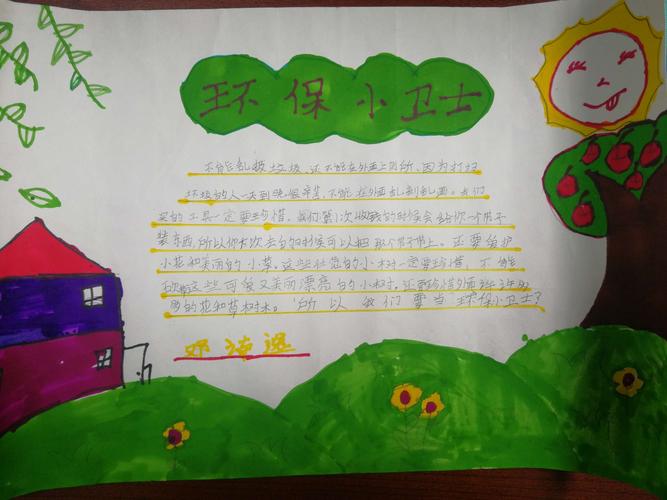 环保小卫士
不能乱扔垃圾,还不能在外面上厕所,因为打扫
垃圾的人一天到晚很辛苦,不能在外面乱刻乱画。我们
买的工具一定要珍惜。我们第一次收的时候会给你一个袋子
装东西,所以你下次去的时候可以把那个袋子带上。还要保护
小花和美丽的小草。这些壮观的小树一定要珍惜,不能
砍这些可爱又美丽漂亮的小树。还要珍惜外面
的花和草树木。所以我们要当环保小卫士?
邓